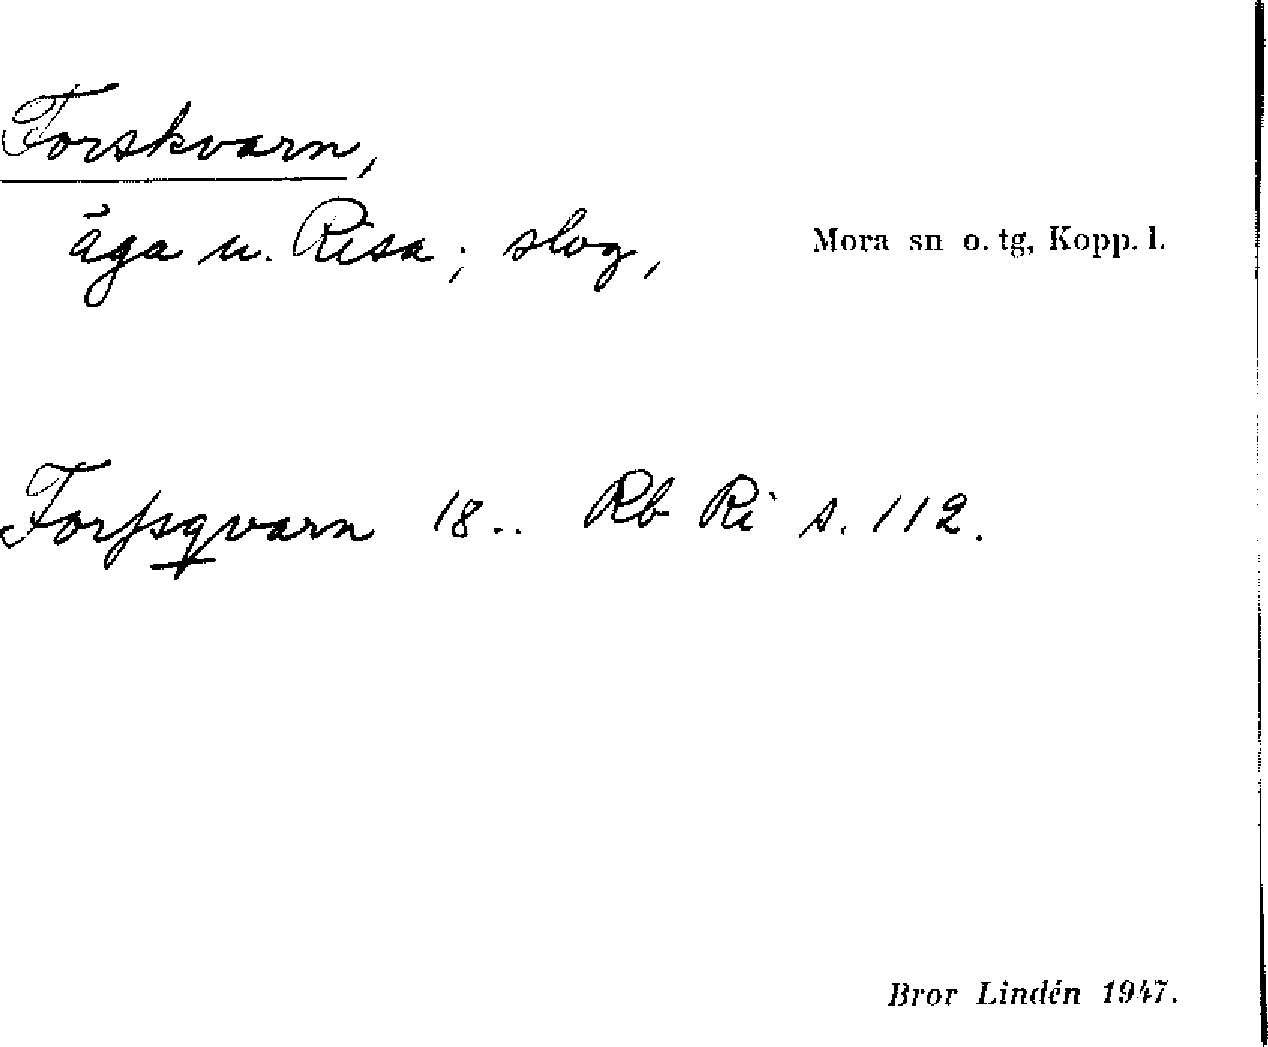 Forskvarn,
äga u. Risa; slog,
Mora sn o. tg, Kopp. l.
Forssqvarn 18.. Rb Ri s. 112.
Bror Lindén 1947.